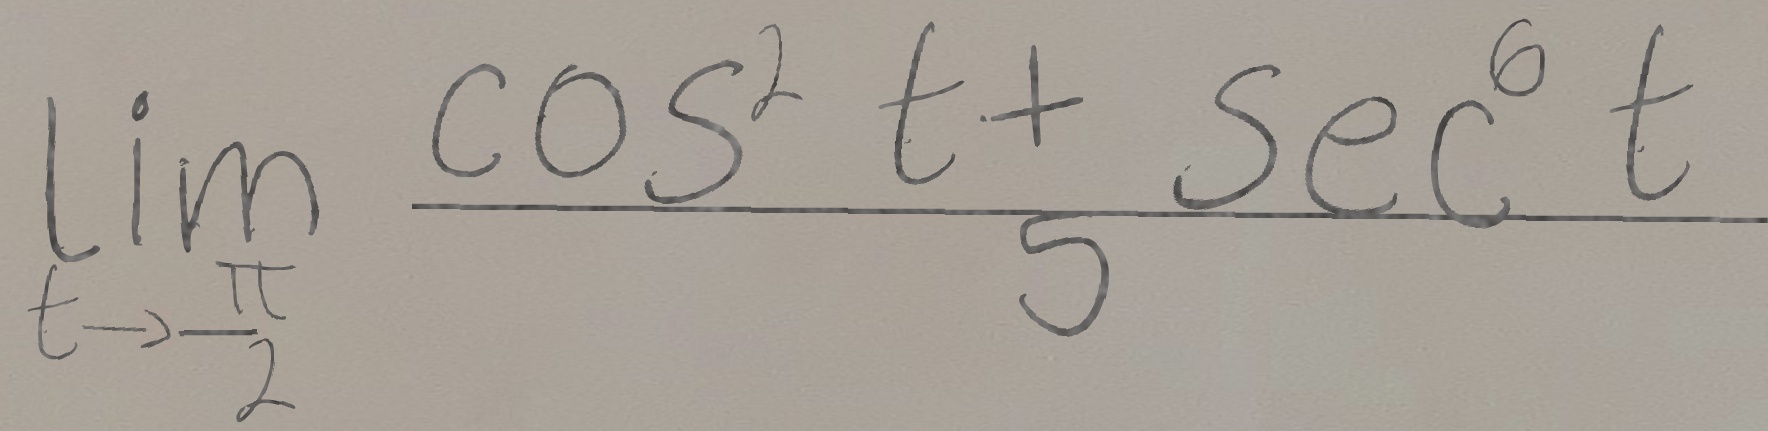 \lim_{t \to \frac{\pi}{2}} \frac{\cos^2 t + \sec^6 t}{5}